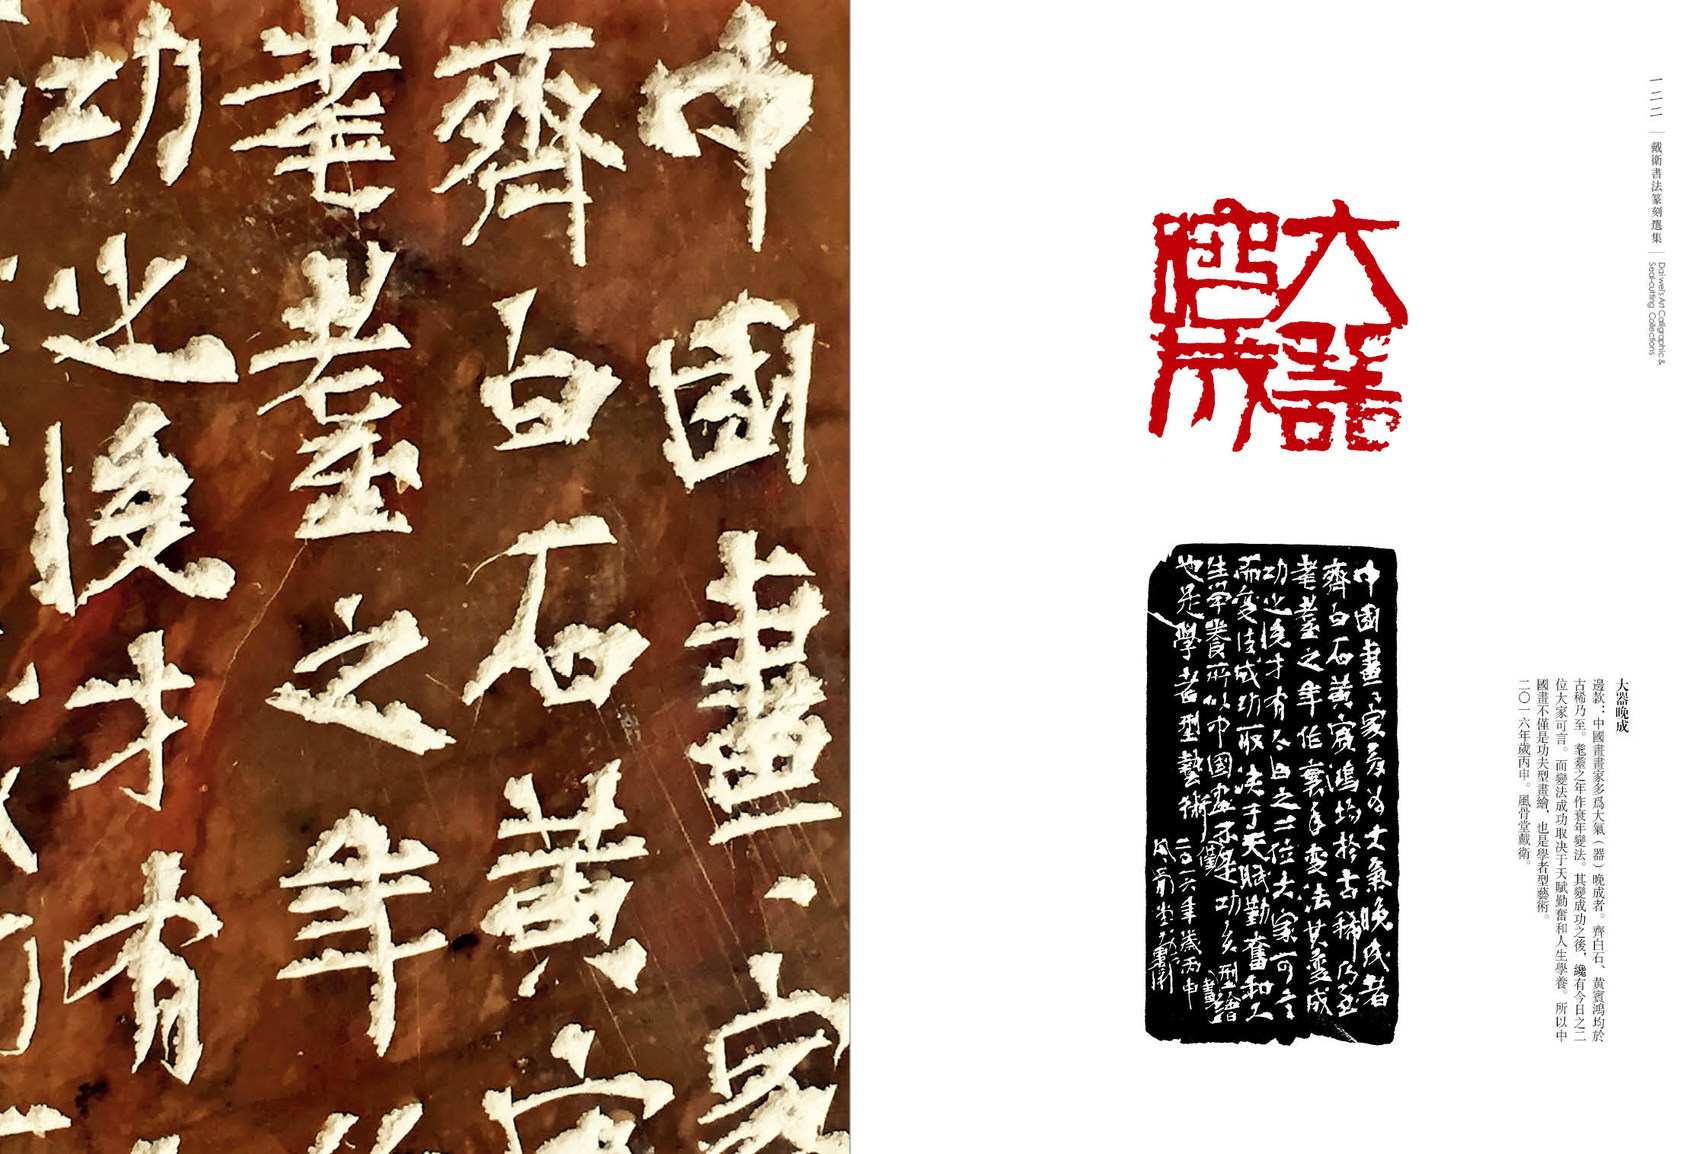 一二二
戴衛書法篆刻選集
Dai wei's Art Calligraphic &
Seal-cutting Collections
大器晚成
大器晚成
邊款：中國畫畫家多爲大氣（器）晚成者。齊白石、黃賓鴻均於
古稀乃至。耄耋之年作衰年變法。其變成功之後，纔有今日之二
位大家可言。而變法成功取决于天賦勤奮和人生學養。所以中
國畫不僅是功夫型畫繪，也是學者型藝術。
二〇一六年歲丙申。風骨堂戴衛。
中國畫〻家多为大氣晚成者
齊白石黃賓鴻均於古稀乃至
耄耋之年作衰年变法其變成
功之後才有今日之二位大家可言
而变法成功取决于天賦勤奮和人
生学養所以中国画不僅是功夫型畫繪
也是學者型藝術
二〇一六年歲丙申
风骨堂戴衛
中國畫〻家
齊白石黃賓
耄耋之年
功之後才有